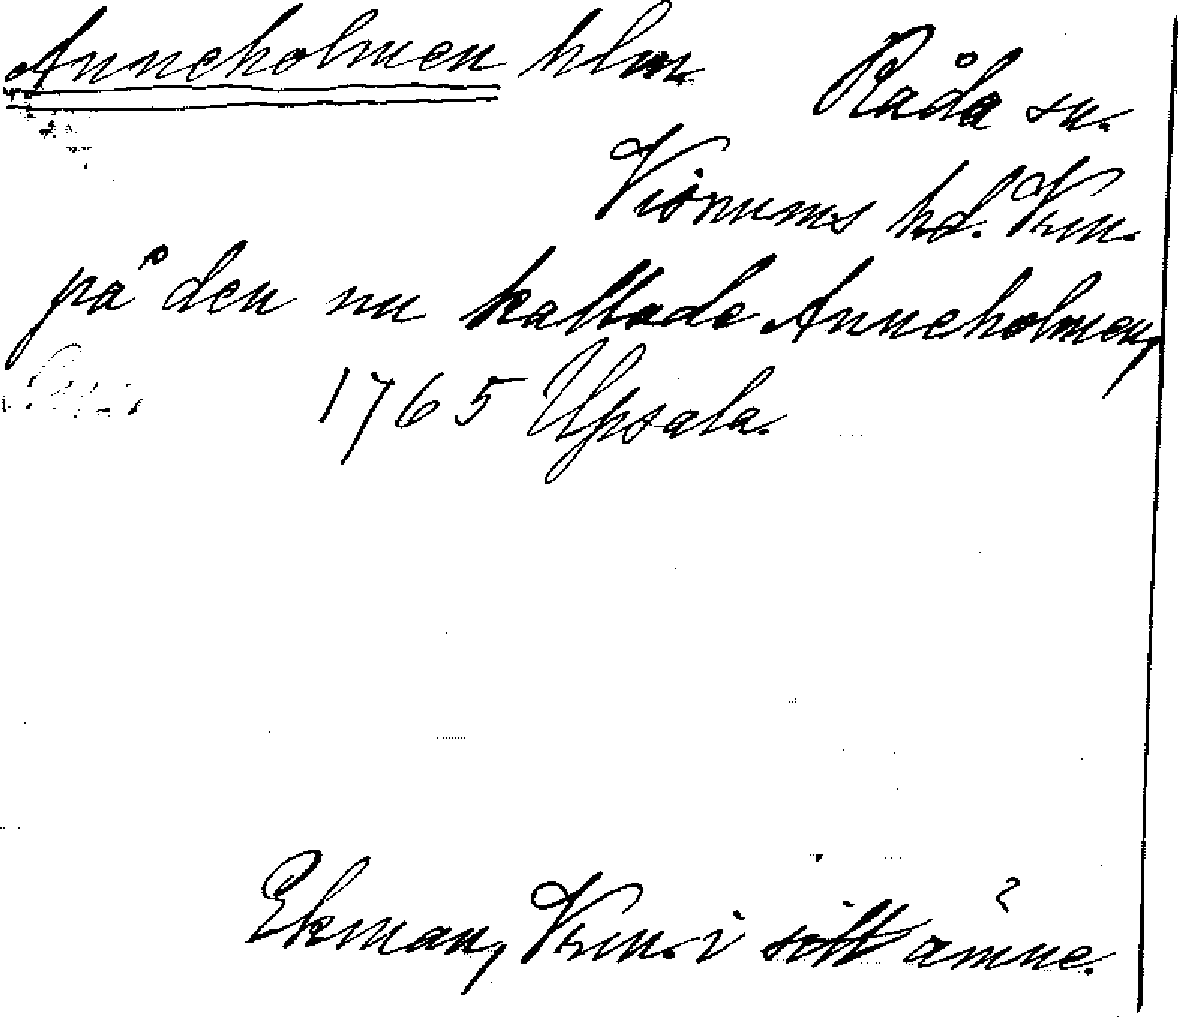 Anneholmen hlm Råda sn.
Visnums hd. Vrm.
på den nu kallade Anneholmen,
1765 Upsala.
Ekman, Vrm. i sitt ämne.